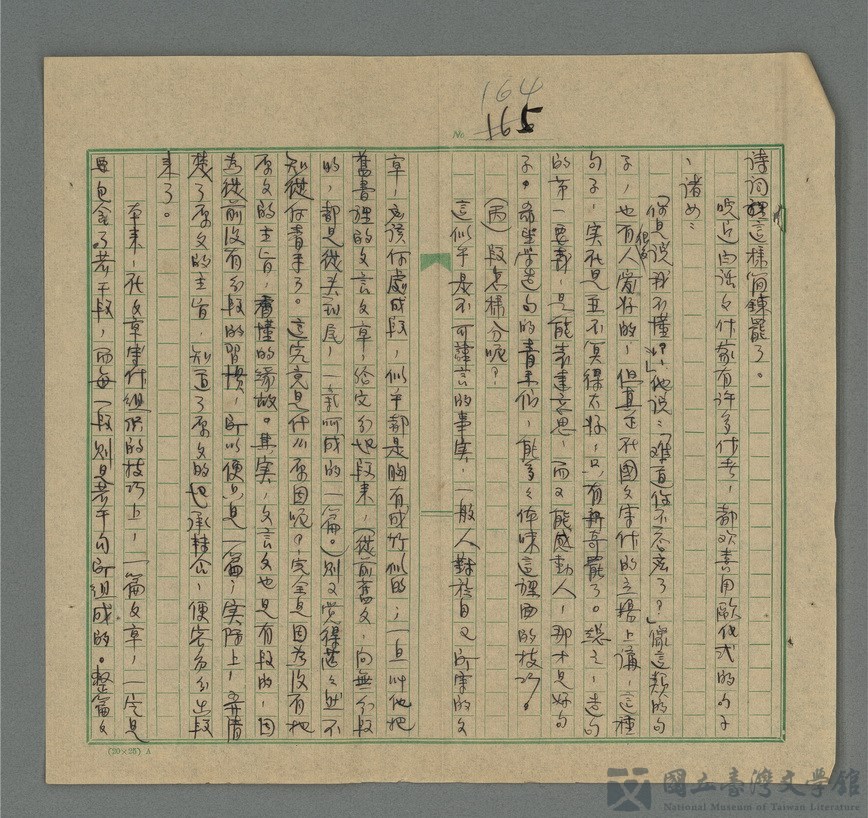 164
No. 165
詩詞裡這樣简鍊罷了。
晚近白話文作家有許多作者，都欢喜用歐化式的句子
，諸如：
「你是說我不懂吗？」他說：「难道你不会忘了？」像這類的句
子，也有人偶然爱好的，但真正在國文寫作的立場上講，這種
句子，实在是並不見得太好，只有新奇罷了。總之，造句
的第一要義，是能表達意思，而又能感動人，那才是好句
子。希望学造句的青年们，能多多体味這裡面的技巧。
（丙）段怎樣分呢？
這似乎是不可諱言的事实，一般人對於自己所寫的文
章，應該何處成段，似乎都是胸有成竹似的；一旦叫他把
舊書裡的文言文章，给它分出段来，（從前舊文，向無分段
的，都是從头到尾，一氣呵成的一篇。）則又覚得茫々然不
知從何着手了。這究竟是什么原因呢？完全是因為没有把
原文的主旨，看懂的缘故。其实，文言文也是有段的，因
為從前没有分段的習惯，所以便只是一篇；实际上，弄清
楚了原文的主旨，知道了原文的起承轉合，便容易分出段
来了。
本来，在文章寫作組織的技巧上，一篇文章，一定是
要包含了若干段，而每一段則是若干句所組成的。整篇文
(20×25) A
國立臺灣文學館
National Museum of Taiwan Literature